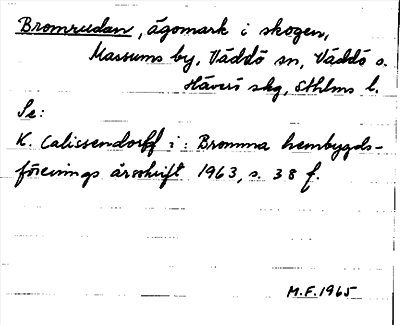 Bromrudan, ägomark i skogen,
Massums by, Väddö sn, Väddö o.
Häverö skg, Sthlms l.
Se:
K. Calissendorff i: Bromma hembygds-
förenings årsskrift 1963, s. 38 f.
M.F. 1965